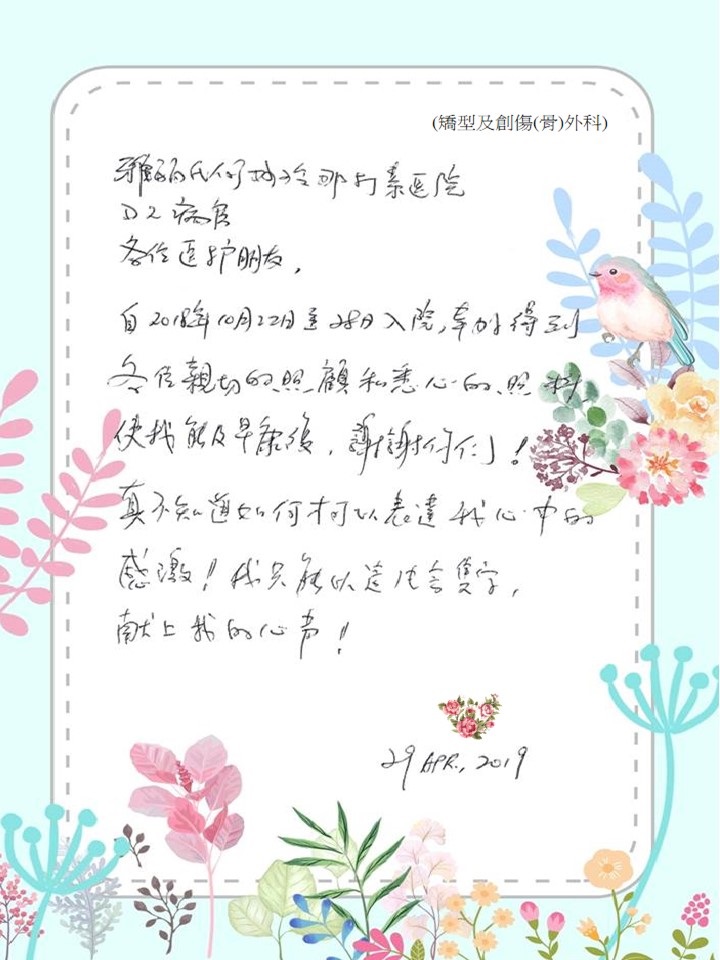 (矯型及創傷(骨)外科)
雅麗氏何妙齡那打素医院
D2病房
各位医护朋友，
自2018年10月22日至28日入院，幸好得到
各位親切的照顧和悉心的照料
使我能及早康復，謝謝你们！
真不知道如何才可以表達我心中的
感激！我只能以這片言隻字，
献上我的心声！
29 APR., 2019